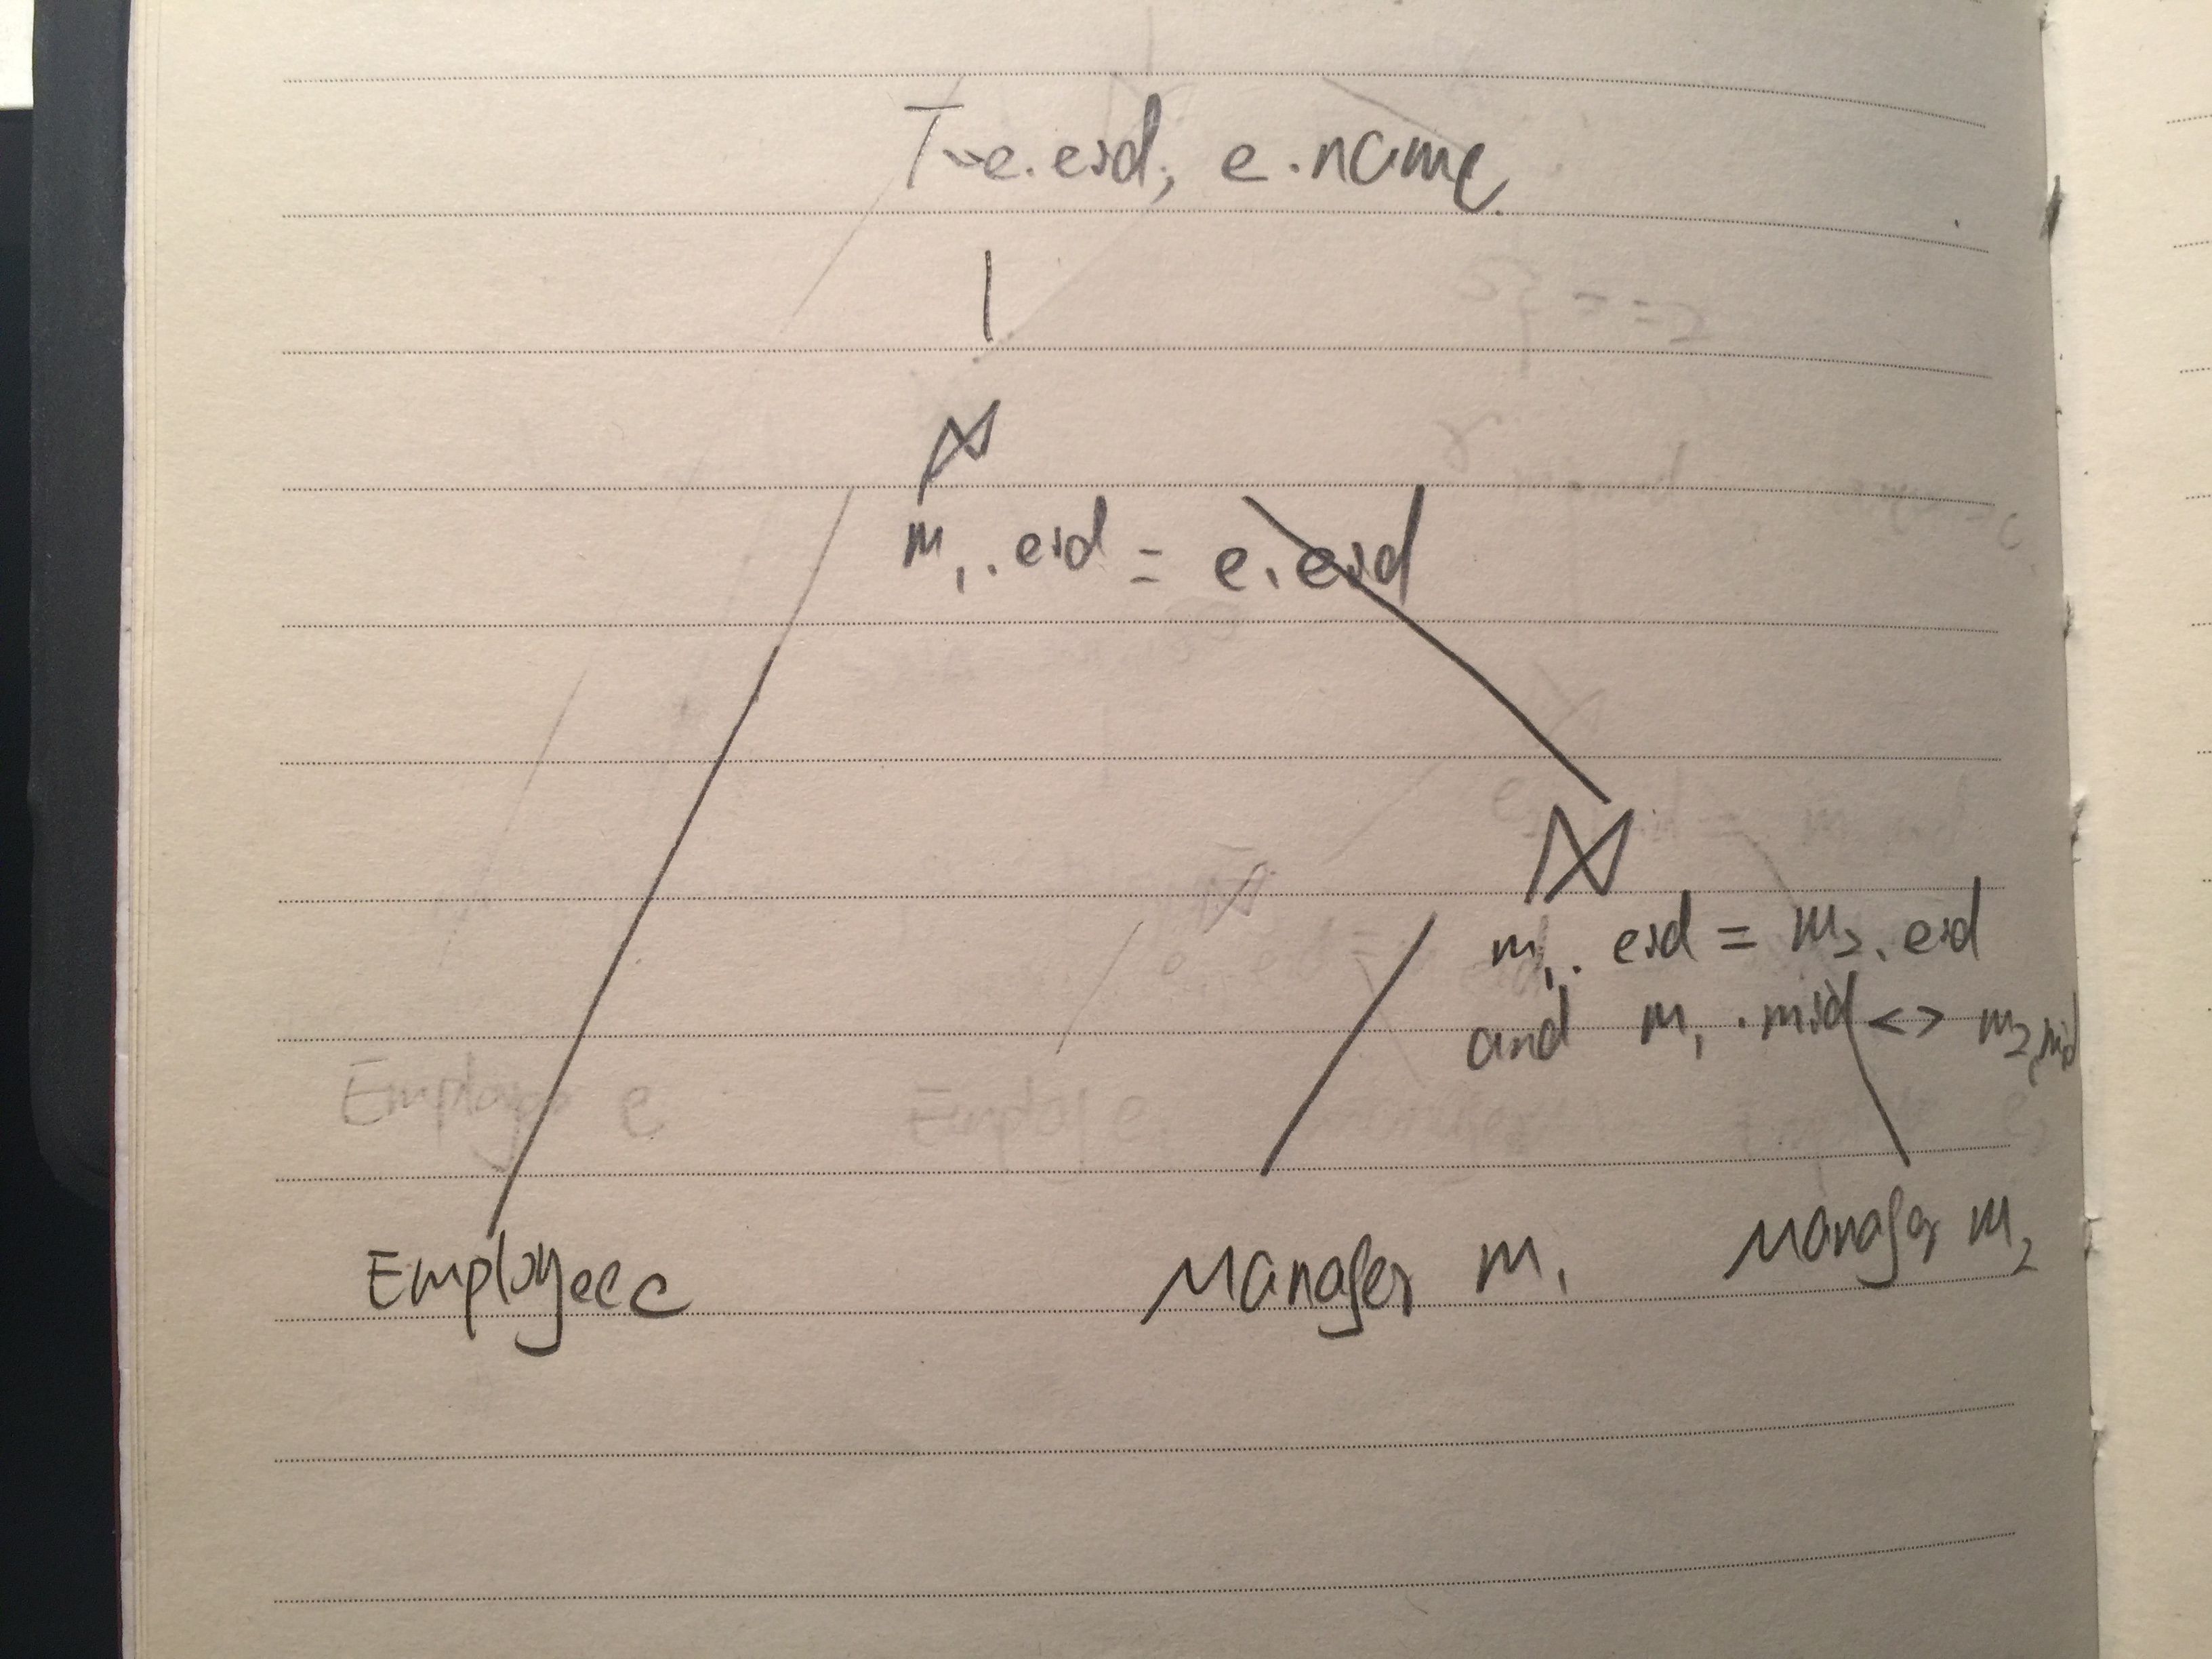 π e.eid, e.name
⋈
m₁.eid = e.eid
⋈
m₁.eid = m₂.eid
and m₁.mid <> m₂.mid
Employee e
Manager m₁
Manager m₂